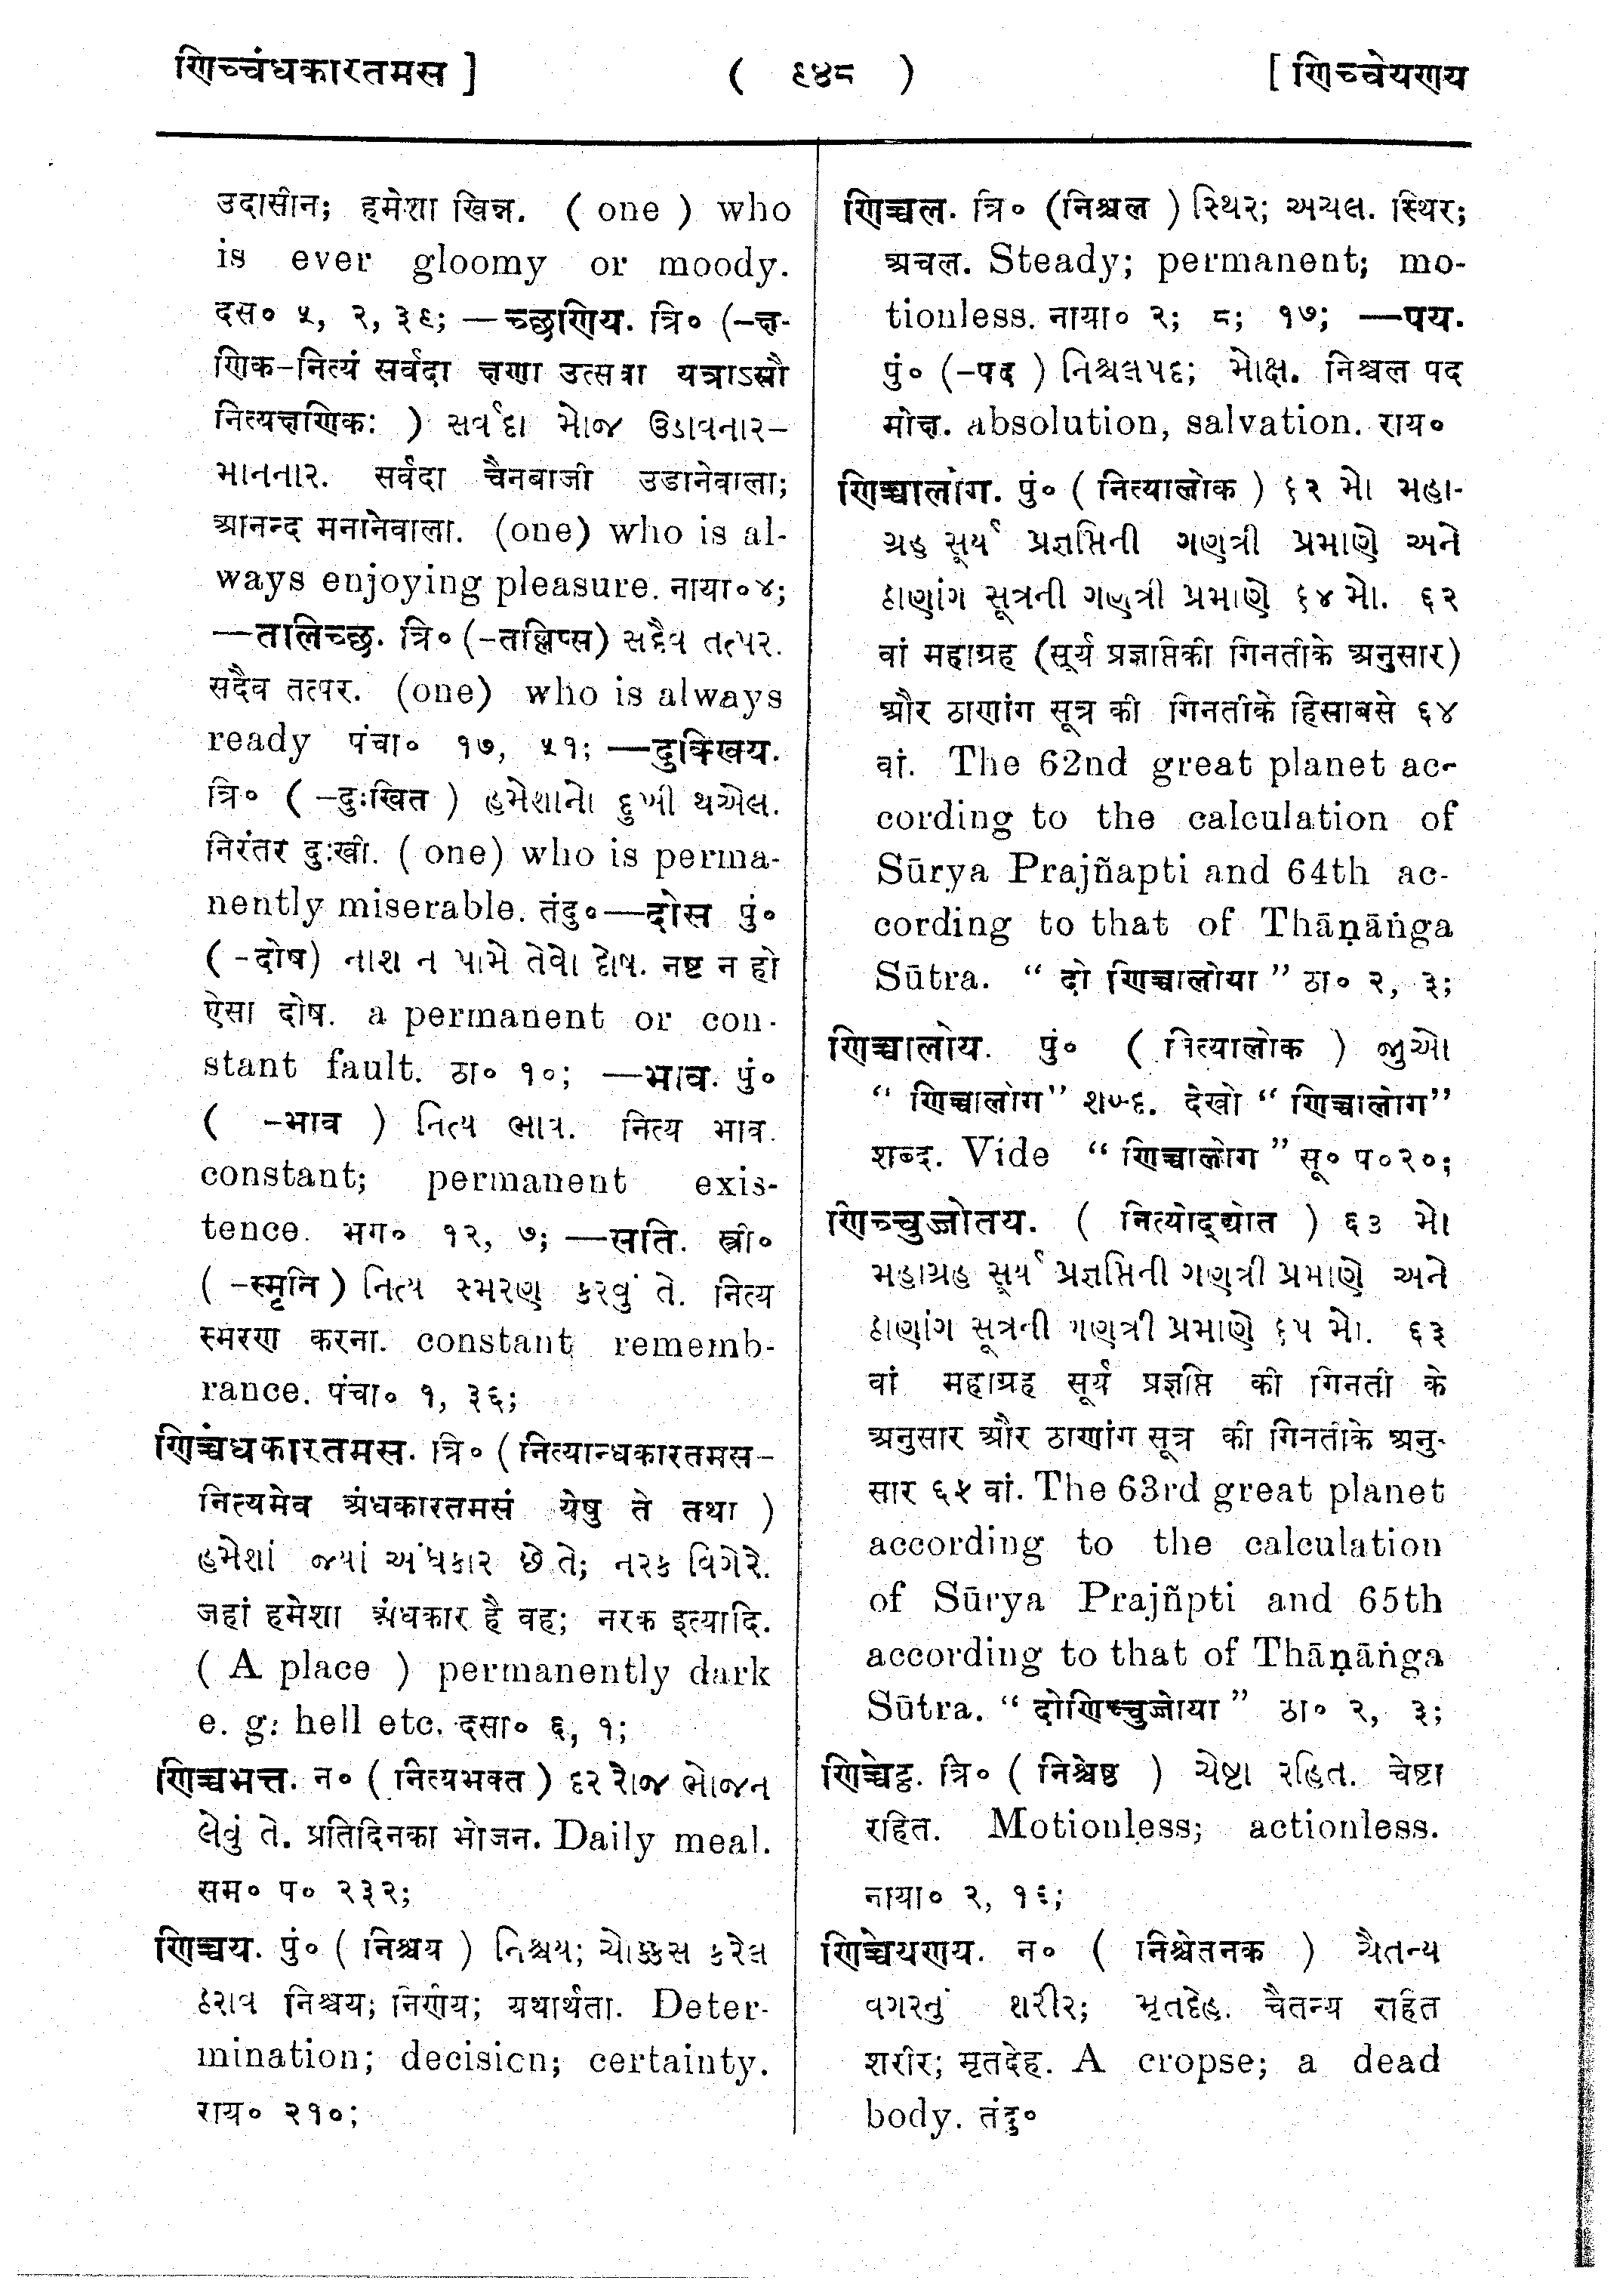 णिच्चंधकारतमस ] ( ९४८ ) [ णिच्चेयणय
उदासीन; हमेशा खिन्न. ( one ) who
is ever gloomy or moody.
दस० ५, २, ३९; —च्छणिय. त्रि० (-क्ष-
णिक-नित्यं सर्वदा क्षणा उत्सवा यत्राऽसौ
नित्यक्षणिकः ) સર્વદા મોજ ઉડાવનાર-
માનનાર. सर्वदा चैनबाजी उडानेवाला;
आनन्द मनानेवाला. (one) who is al-
ways enjoying pleasure. नाया० ४;
—तल्लिच्छ. त्रि० (-तल्लिप्स) સદૈવ તત્પર.
सदैव तत्पर. (one) who is always
ready पंचा० १७, ५१; —दुक्खिय.
त्रि० ( -दुःखित ) હમેશાનો દુખી થએલ.
निरंतर दुःखी. ( one) who is perma-
nently miserable. तंदु० —दोस पुं०
( -दोष) નાશ ન પામે તેવો દોષ. नष्ट न हो
ऐसा दोष. a permanent or con-
stant fault. ठा० १०; —भाव. पुं०
( -भाव ) નિત્ય ભાવ. नित्य भाव.
constant; permanent exis-
tence. भग० १२, ७; —सति. स्त्री०
( -स्मृति ) નિત્ય સ્મરણ કરવું તે. नित्य
स्मरण करना. constant rememb-
rance. पंचा० १, ३६;
णिच्चंधकारतमस. त्रि० ( नित्यान्धकारतमस-
नित्यमेव अंधकारतमसं येषु ते तथा )
હમેશાં જ્યાં અંધકાર છે તે; નરક વિગેરે.
जहां हमेशा अंधकार है वह; नरक इत्यादि.
( A place ) permanently dark
e. g: hell etc. दसा० ६, १;
णिच्चभत्त. न० ( नित्यभक्त ) દર રોજ ભોજન
લેવું તે. प्रतिदिनका भोजन. Daily meal.
सम० प० २३२;
णिच्चय. पुं० ( निश्चय ) નિશ્ચય; ચોક્કસ કરેલ
ઠરાવ निश्चय; निर्णय; यथार्थता. Deter-
mination; decisicn; certainty.
राय० २१०;
णिच्चल. त्रि० (निश्चल ) સ્થિર; અચલ. स्थिर;
अचल. Steady; permanent; mo-
tionless. नाया० २; ८; १७; —पय.
पुं० (-पद ) નિશ્ચલપદ; મોક્ષ. निश्चल पद
मोक्ष. absolution, salvation. राय०
णिच्चालोग. पुं० ( नित्यालोक ) ૬૨ મો મહા-
ગ્રહ સૂર્ય પ્રજ્ઞપ્તિની ગણત્રી પ્રમાણે અને
ઠાણાંગ સૂત્રની ગણત્રી પ્રમાણે ૬૪ મો. ६२
वां महाग्रह (सूर्य प्रज्ञप्तिकी गिनतीके अनुसार)
और ठाणांग सूत्र की गिनतीके हिसाबसे ६४
वां. The 62nd great planet ac-
cording to the calculation of
Sūrya Prajñapti and 64th ac-
cording to that of Thāṇāṅga
Sūtra. “ दो णिच्चालोया ” ठा० २, ३;
णिच्चालोय. पुं० ( नित्यालोक ) જુઓ
“ णिच्चालोग ” શબ્દ. देखो “ णिच्चालोग”
शब्द. Vide “ णिच्चालोग ” सू० प० २०;
णिच्चुज्जोतय. ( नित्योद्द्योत ) ૬૩ મો
મહાગ્રહ સૂર્ય પ્રજ્ઞપ્તિની ગણત્રી પ્રમાણે અને
ઠાણાંગ સૂત્રની ગણત્રી પ્રમાણે ૬૫ મો. ६३
वां महाग्रह सूर्य प्रज्ञप्ति की गिनती के
अनुसार और ठाणांग सूत्र की गिनतीके अनु-
सार ६५ वां. The 63rd great planet
according to the calculation
of Sūrya Prajñpti and 65th
according to that of Thāṇāṅga
Sūtra. “ दोणिच्चुज्जोया ” ठा० २, ३;
णिच्चेट्ठ. त्रि० ( निश्चेष्ठ ) ચેષ્ટા રહિત. चेष्टा
रहित. Motionless; actionless.
नाया० २, १६;
णिच्चेयणय. न० ( निश्चेतनक ) ચૈતન્ય
વગરનું શરીર; મૃતદેહ. चैतन्य रहित
शरीर; मृतदेह. A cropse; a dead
body. तंदु०